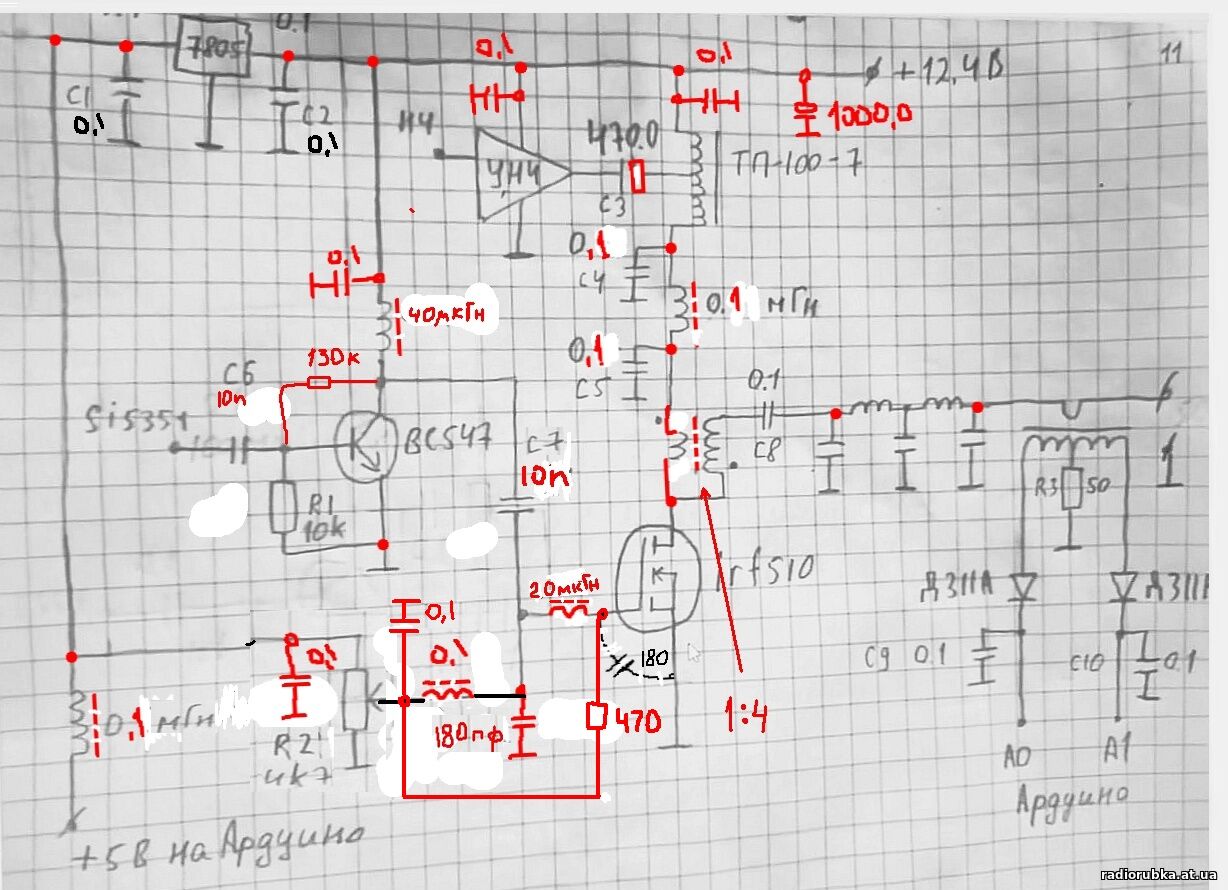 0.1
7805
0,1
0,1
+12,4В
11
C1
0,1
C2
0,1
НЧ
УНЧ
470.0
C3
ТП-100-7
1000,0
0,1
C4
0,1
40мкГн
0.1 мГн
130к
0,1
C5
C6
10n
0.1
C8
Si5351
BC547
C7
10n
R1
10k
R3
50
irf510
20мкГн
Д311А
Д311
0,1
0,1
0,1
180
C9 0.1
C10
0.1
0,1 мГн
R2
4к7
180пф
470
1:4
A0
A1
Ардуино
+5В на Ардуино
radiorubka.at.ua